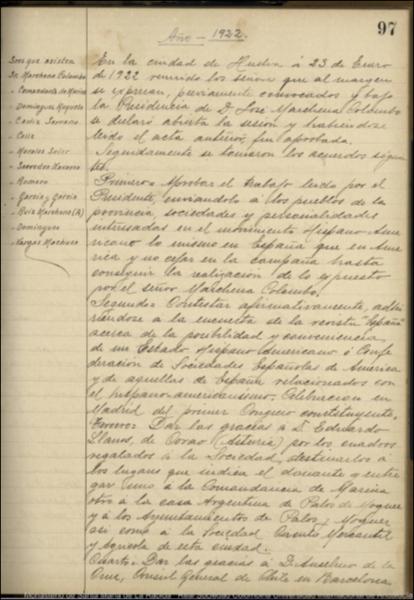 97
Año - 1922.
Sres que asisten
Sr. Marchena Colombo
- Comandante de Marina
- Dominguez Roqueta
- Cadiz Serrano
- Caliz
- Morales Soler
- Saavedra Navarro
- Romero
- Garcia y Garcia
- Ruiz Marchena (A)
- Dominguez
- Vargas Machuca
En la ciudad de Huelva á 23 de Enero
de 1922 reunidos los señores que al margen
se expresan, previamente convocados y bajo
la Presidencia de D. José Marchena Colombo
se declaró abierta la sesión y habiéndose
leido el acta anterior, fué aprobada.
Seguidamente se tomaron los acuerdos siguien
tes.
Primero = Aprobar el trabajo leido por el
Presidente, enviándolo a los pueblos de la
provincia, sociedades y personalidades
interesadas en el movimiento Hispano-Ame-
ricano lo mismo en España que en Amé-
rica y no cejar en la campaña hasta
conseguir la realización de lo expuesto
por el señor Marchena Colombo.
Segundo = Contestar afirmativamente, adhi-
riéndose a la encuesta de la revista "España"
acerca de la posibilidad y conveniencia
de un Estado Hispano Americano ó Confe
deración de Sociedades Españolas de América
y de aquellas de España relacionadas con
el hispano-americanismo. Celebracion en
Madrid del primer Congreso constituyente.
Tercero = Dar las gracias á D. Eduardo
Llanos, de Corao (Asturia) por los cuadros
regalados á la Sociedad, destinarlos á
los lugares que indica el donante y entre
gar uno á la Comandancia de Marina
otro á la casa Argentina de Palos de Moguer
y á los Ayuntamientos de Palos y Moguer
asi como á la Sociedad Circulo Mercantil
y Agricola de esta ciudad.
Cuarto = Dar las gracias á D. Anselmo de la
Cruz, Consul General de Chile en Barcelona